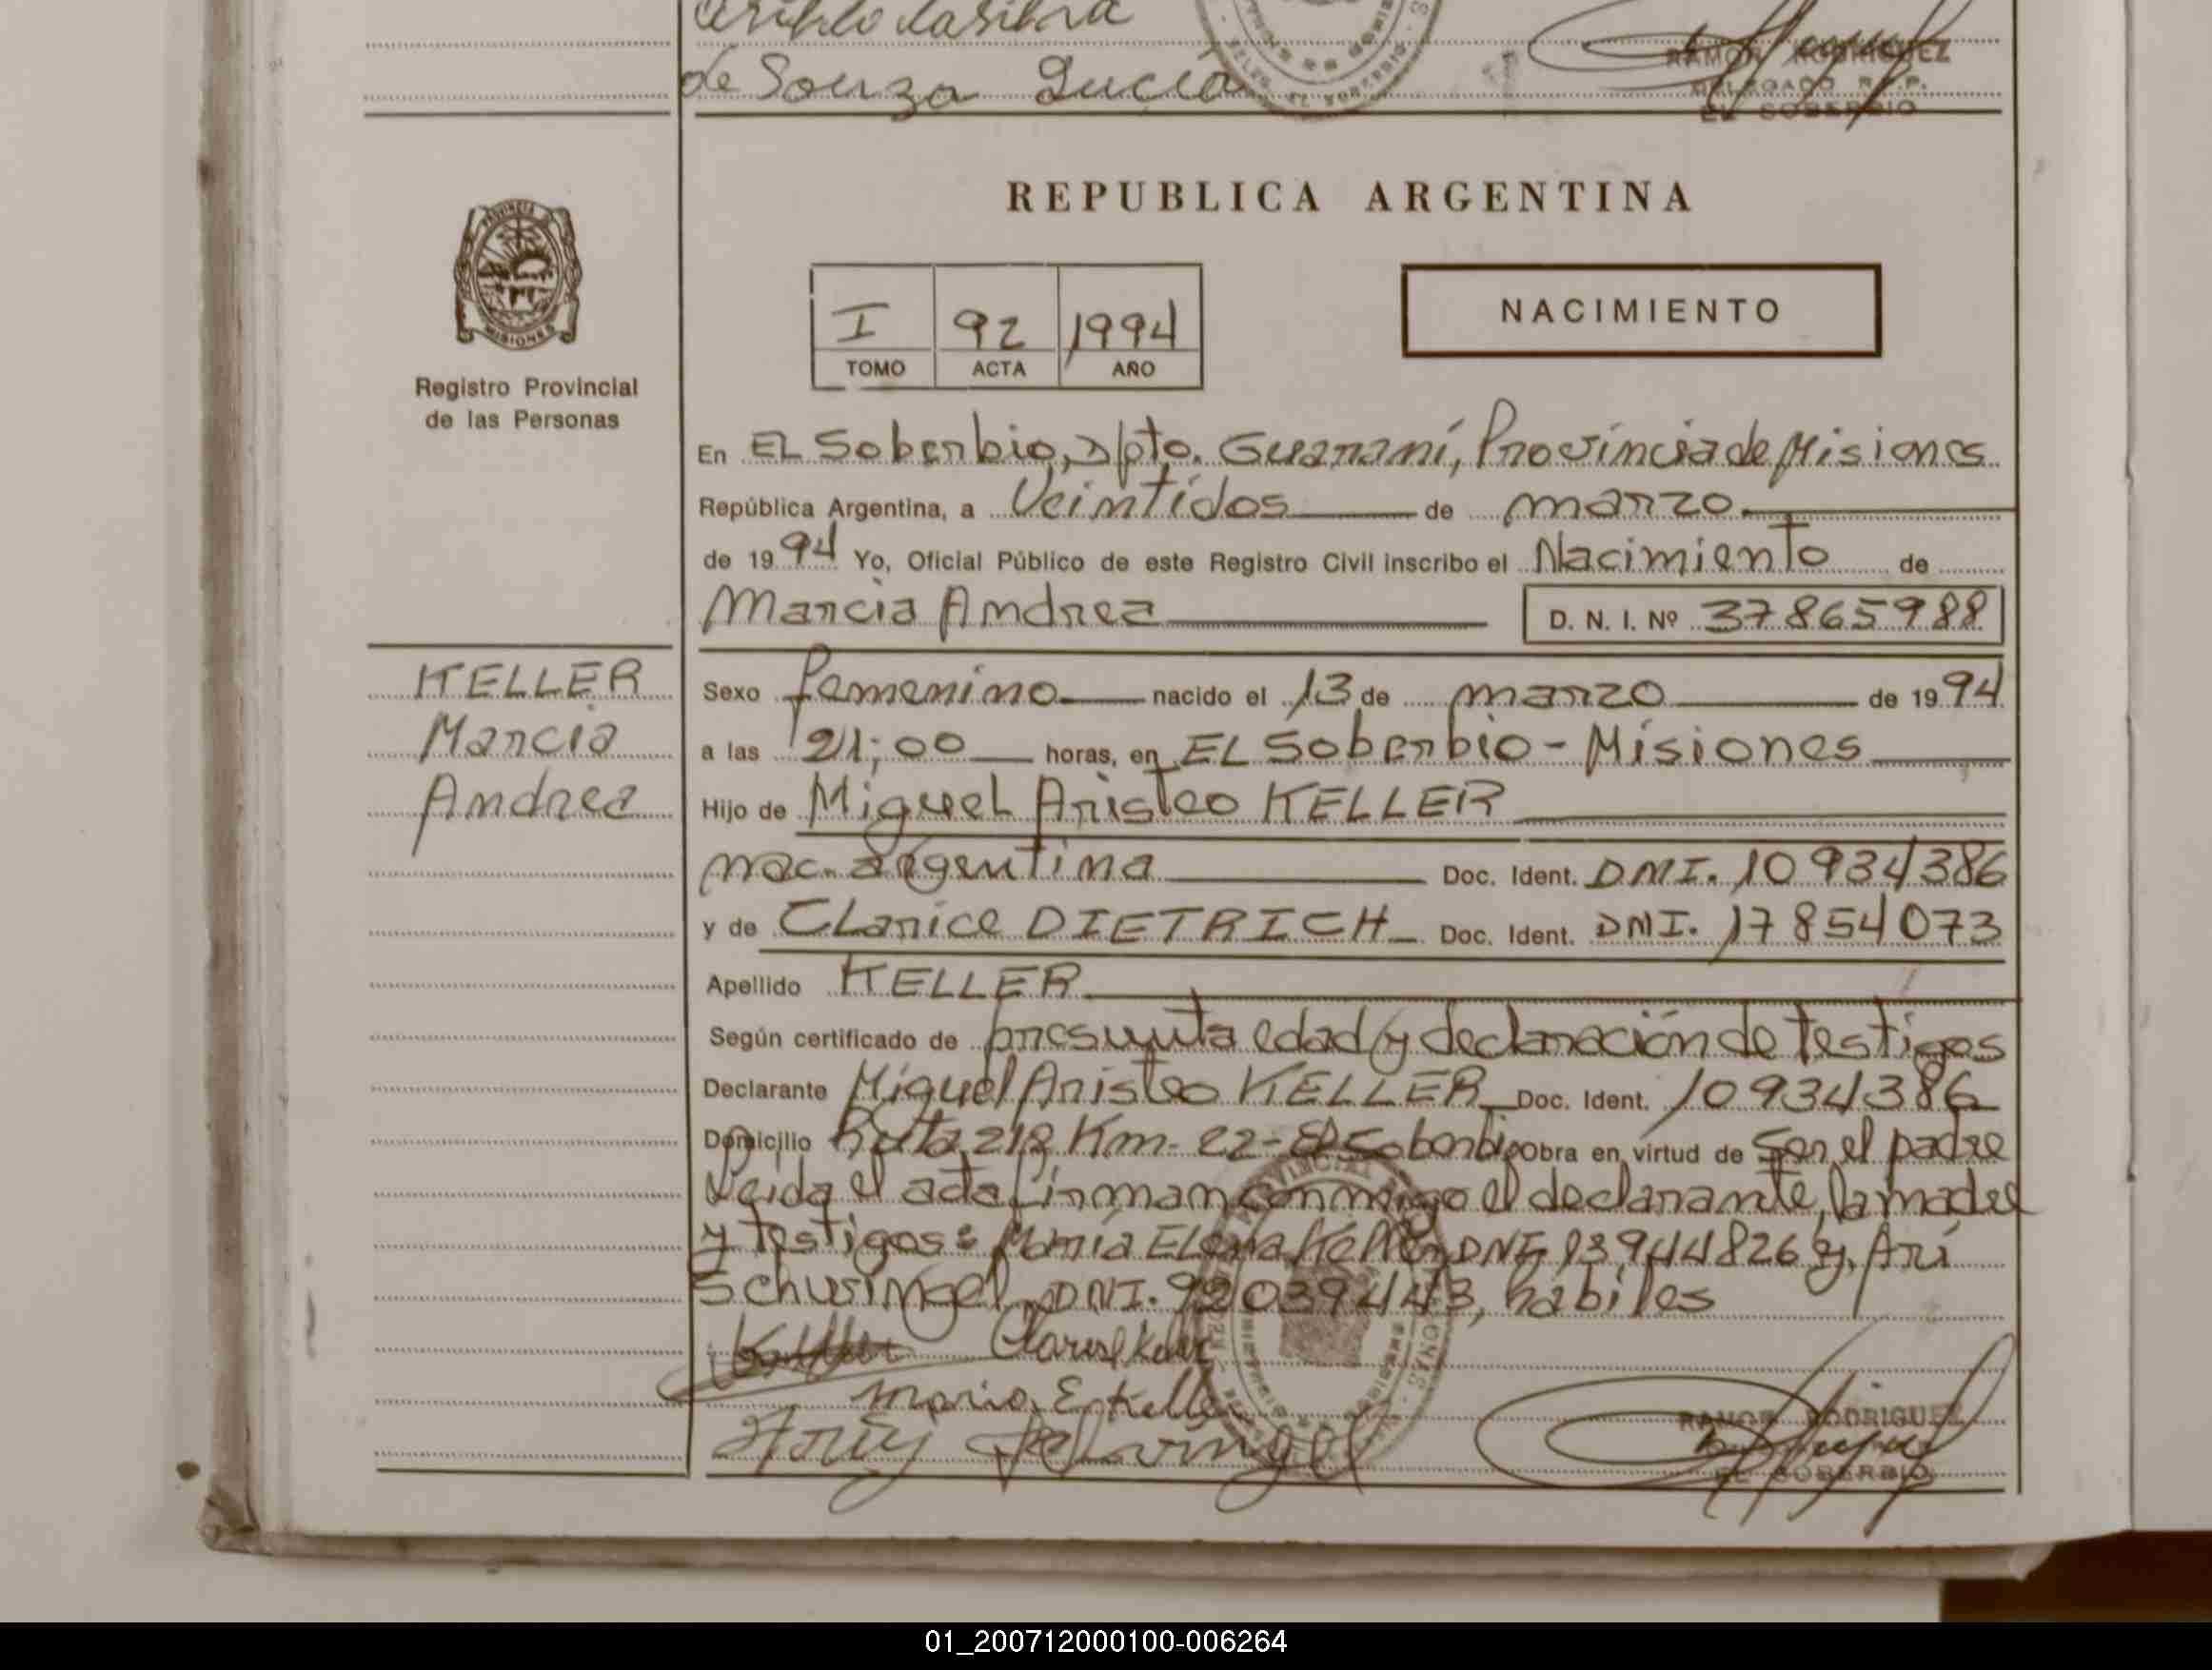 de Souza Lucía
RAMON RODRIGUEZ
DELEGADO R.P.P.
EL SOBERBIO
PROVINCIA DE
MISIONES
Registro Provincial
de las Personas
REPUBLICA ARGENTINA
I 92 1994
TOMO ACTA AÑO
NACIMIENTO
En EL Soberbio, Dpto. Guaraní, Provincia de Misiones
República Argentina, a Veintidos de marzo
de 1994 Yo, Oficial Público de este Registro Civil inscribo el Nacimiento de
Marcia Andrea D. N. I. Nº 37865988
KELLER
Marcia
Andrea
Sexo femenino nacido el 13 de marzo de 1994
a las 21:00 horas, en EL Soberbio - Misiones
Hijo de Miguel Aristeo KELLER
nac. argentina Doc. Ident. DNI. 10934386
y de Clarice DIETRICH Doc. Ident. DNI. 17854073
Apellido KELLER
Según certificado de presunta edad y declaración de testigos
Declarante Miguel Aristeo KELLER Doc. Ident. 10934386
Domicilio Ruta 212 Km- 22- El Soberbio obra en virtud de ser el padre
Leida el acta firman conmigo el declarante, la madre
y testigos: María Elena Keller DNI 13944826 y Arí
Schwingel DNI. 92039443, habiles
Keller
Maria E. Keller
RAMON RODRIGUEZ
EL SOBERBIO
01_200712000100-006264